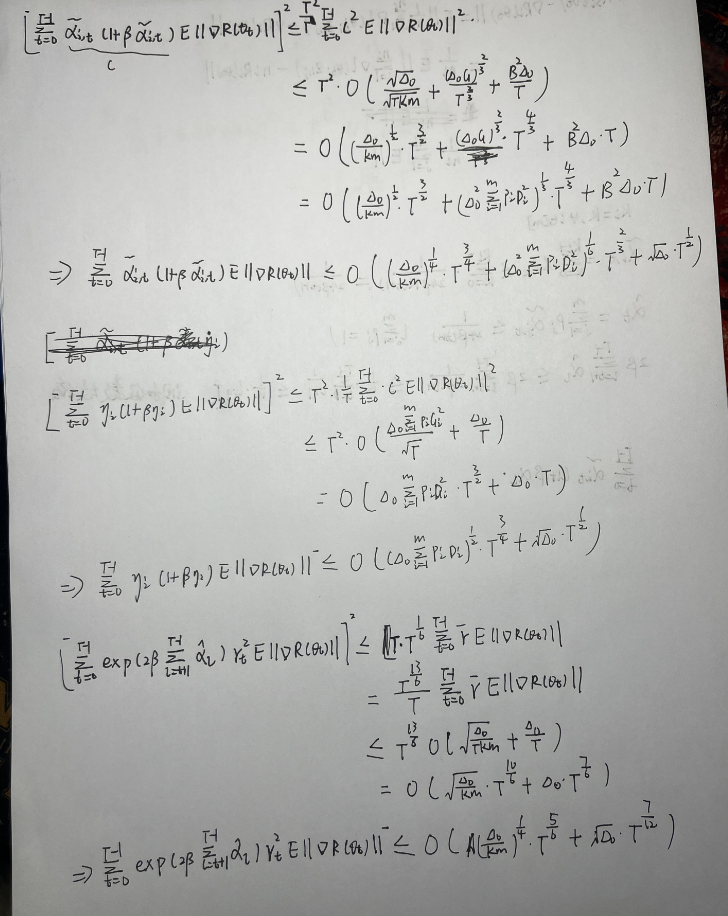 [Σ_{t=0}^{T-1} α̃_{i,t} (1+β α̃_{i,t}) E||∇R(θ_t)||]² ≤ T²/T Σ_{t=0}^{T-1} C² E||∇R(θ_t)||².
C
≤ T² · O( √Δ₀/√(TKm) + (Δ₀G)^{2/3}/T^{2/3} + B²Δ₀/T )
= O( (Δ₀/Km)^{1/2} · T^{3/2} + (Δ₀G)^{2/3} · T^{4/3} + B²Δ₀ · T )
= O( (Δ₀/Km)^{1/2} · T^{3/2} + (Δ₀² Σ_{i=1}^{m} P_i D_i²)^{1/3} · T^{4/3} + B²Δ₀ · T )
⇒ Σ_{t=0}^{T-1} α̃_{i,t} (1+β α̃_{i,t}) E||∇R(θ_t)|| ≤ O( (Δ₀/Km)^{1/4} · T^{3/4} + (Δ₀² Σ_{i=1}^{m} P_i D_i²)^{1/6} · T^{2/3} + √Δ₀ · T^{1/2} )
[Σ_{t=0}^{T-1} η_i (1+βη_i) E||∇R(θ_t)||]² ≤ T² · 1/T Σ_{t=0}^{T-1} · C² E||∇R(θ_t)||²
≤ T² · O( Δ₀ Σ_{i=1}^{m} P_i G_i²/√T + Δ₀/T )
= O( Δ₀ Σ_{i=1}^{m} P_i D_i² · T^{3/2} + Δ₀ · T )
⇒ Σ_{t=0}^{T-1} η_i (1+βη_i) E||∇R(θ_t)|| ≤ O( (Δ₀ Σ_{i=1}^{m} P_i D_i)^{1/2} · T^{3/4} + √Δ₀ · T^{1/2} )
[Σ_{t=0}^{T-1} exp(2β Σ_{l=t+1}^{T-1} α̂_l) γ_t² E||∇R(θ_t)||]² ≤ T · T^{1/6} Σ_{t=0}^{T-1} r̄ E||∇R(θ_t)||
= T^{13/6}/T Σ_{t=0}^{T-1} r̄ E||∇R(θ_t)||
≤ T^{13/6} O( √(Δ₀/TKm) + Δ₀/T )
= O( √(Δ₀/Km) · T^{10/6} + Δ₀ · T^{7/6} )
⇒ Σ_{t=0}^{T-1} exp(2β Σ_{l=t+1}^{T-1} α_l) γ_t² E||∇R(θ_t)|| ≤ O( (Δ₀/Km)^{1/4} · T^{5/6} + √Δ₀ · T^{7/12} )